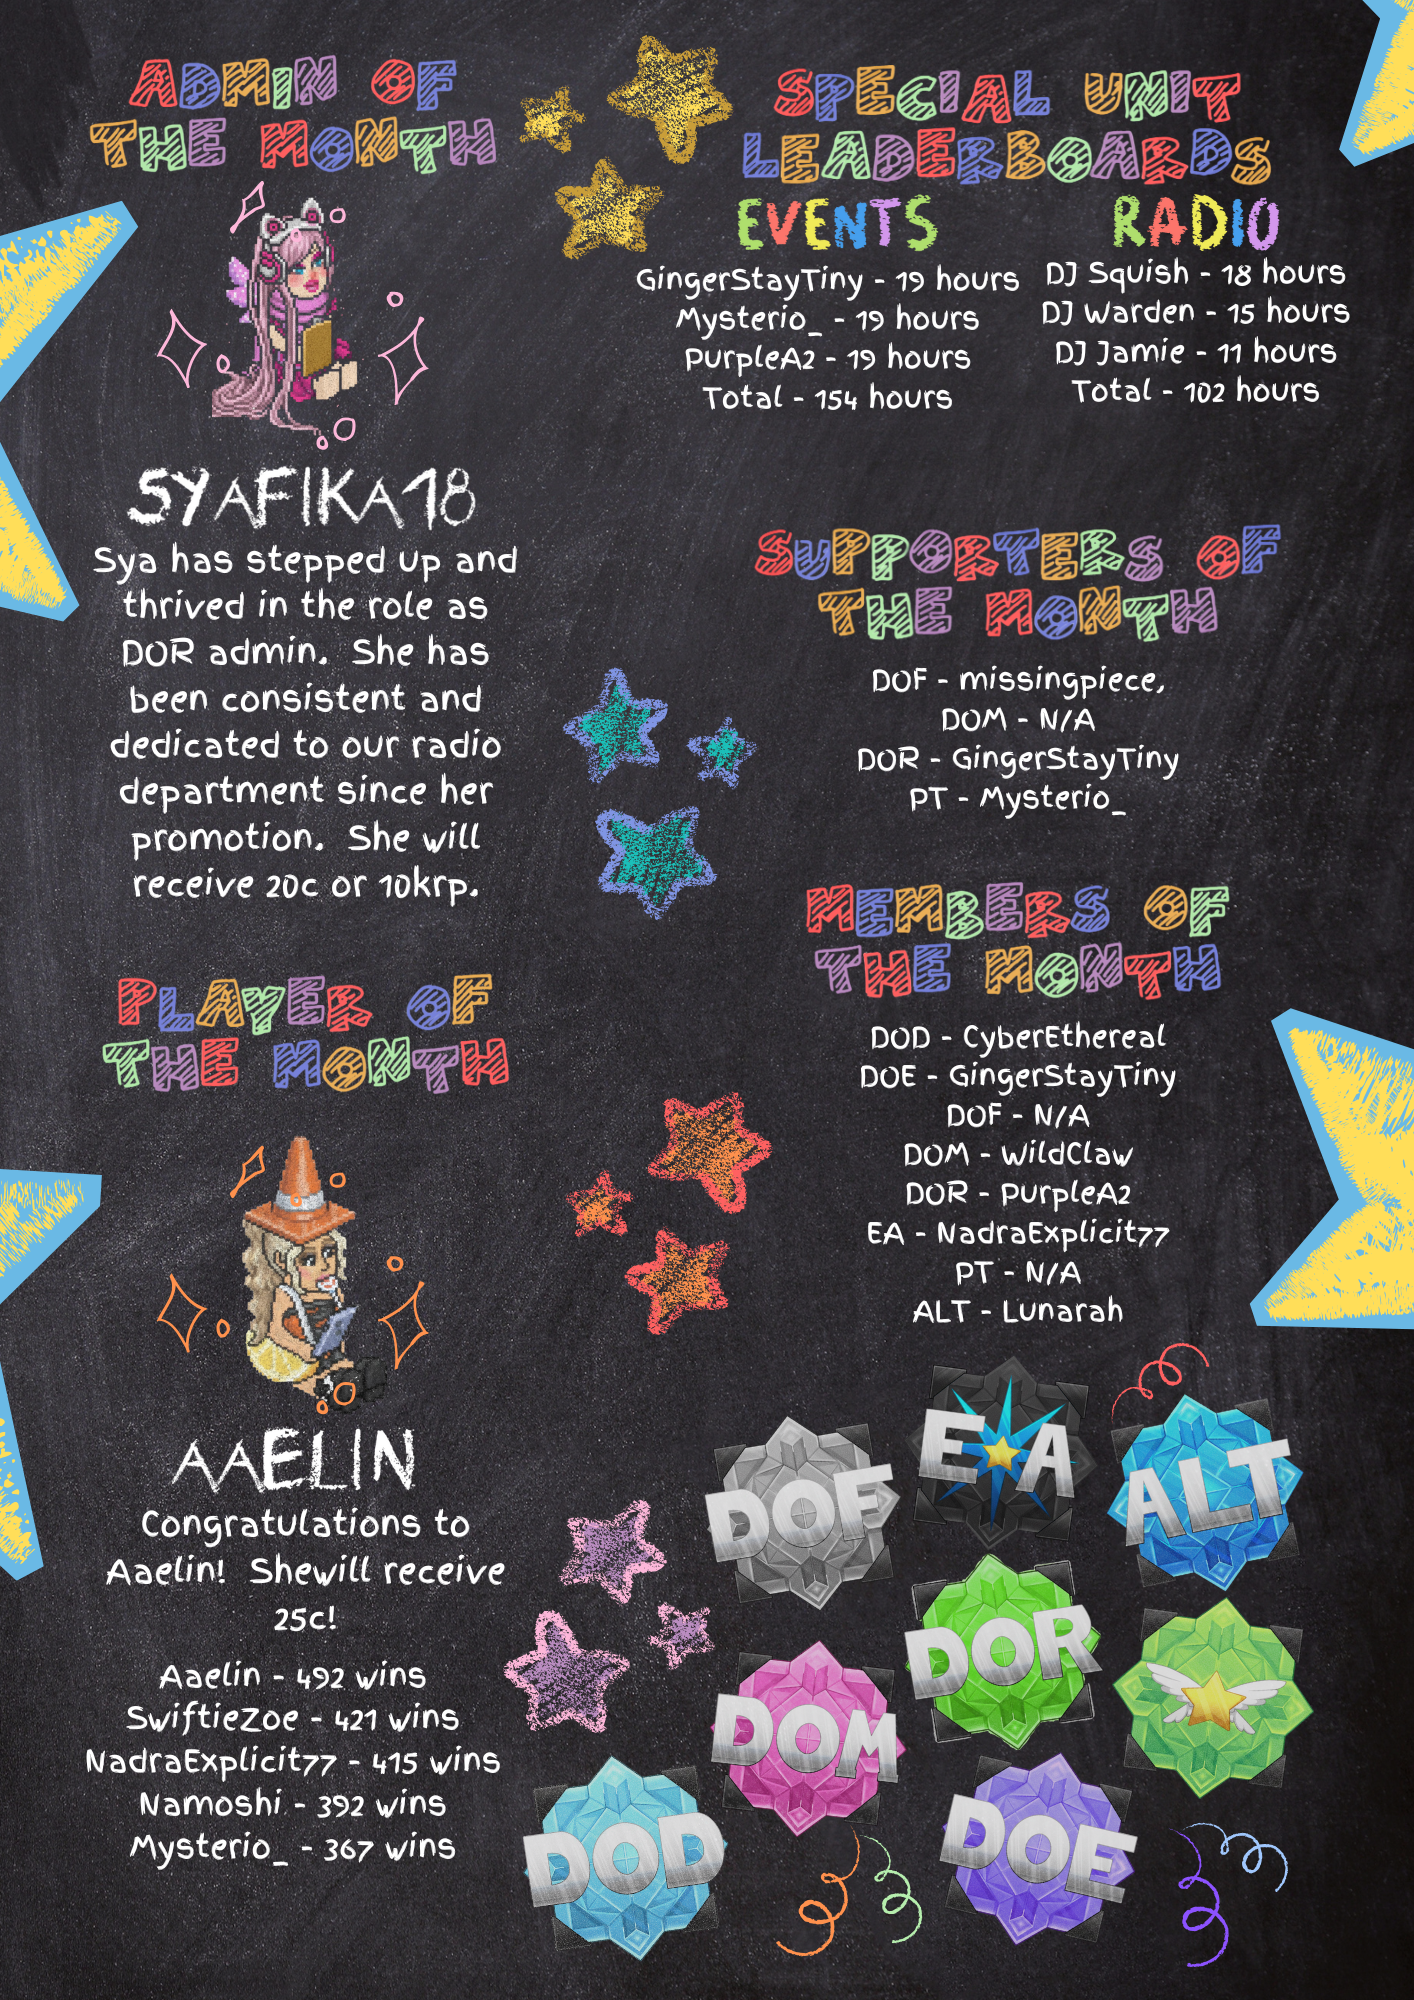 ADMIN OF
THE MONTH
SYAFIKA18
Sya has stepped up and
thrived in the role as
DOR admin.  She has
been consistent and
dedicated to our radio
department since her
promotion.  She will
receive 20c or 10krp.
PLAYER OF
THE MONTH
AAELIN
Congratulations to
Aaelin!  Shewill receive
25c!
Aaelin - 492 wins
SwiftieZoe - 421 wins
NadraExplicit77 - 415 wins
Namoshi - 392 wins
Mysterio_ - 367 wins
SPECIAL UNIT
LEADERBOARDS
EVENTS
GingerStayTiny - 19 hours
Mysterio_ - 19 hours
PurpleA2 - 19 hours
Total - 154 hours
RADIO
DJ Squish - 18 hours
DJ Warden - 15 hours
DJ Jamie - 11 hours
Total - 102 hours
SUPPORTERS OF
THE MONTH
DOF - missingpiece,
DOM - N/A
DOR - GingerStayTiny
PT - Mysterio_
MEMBERS OF
THE MONTH
DOD - CyberEthereal
DOE - GingerStayTiny
DOF - N/A
DOM - WildClaw
DOR - PurpleA2
EA - NadraExplicit77
PT - N/A
ALT - Lunarah
DOF
EA
ALT
DOR
DOM
DOD
DOE